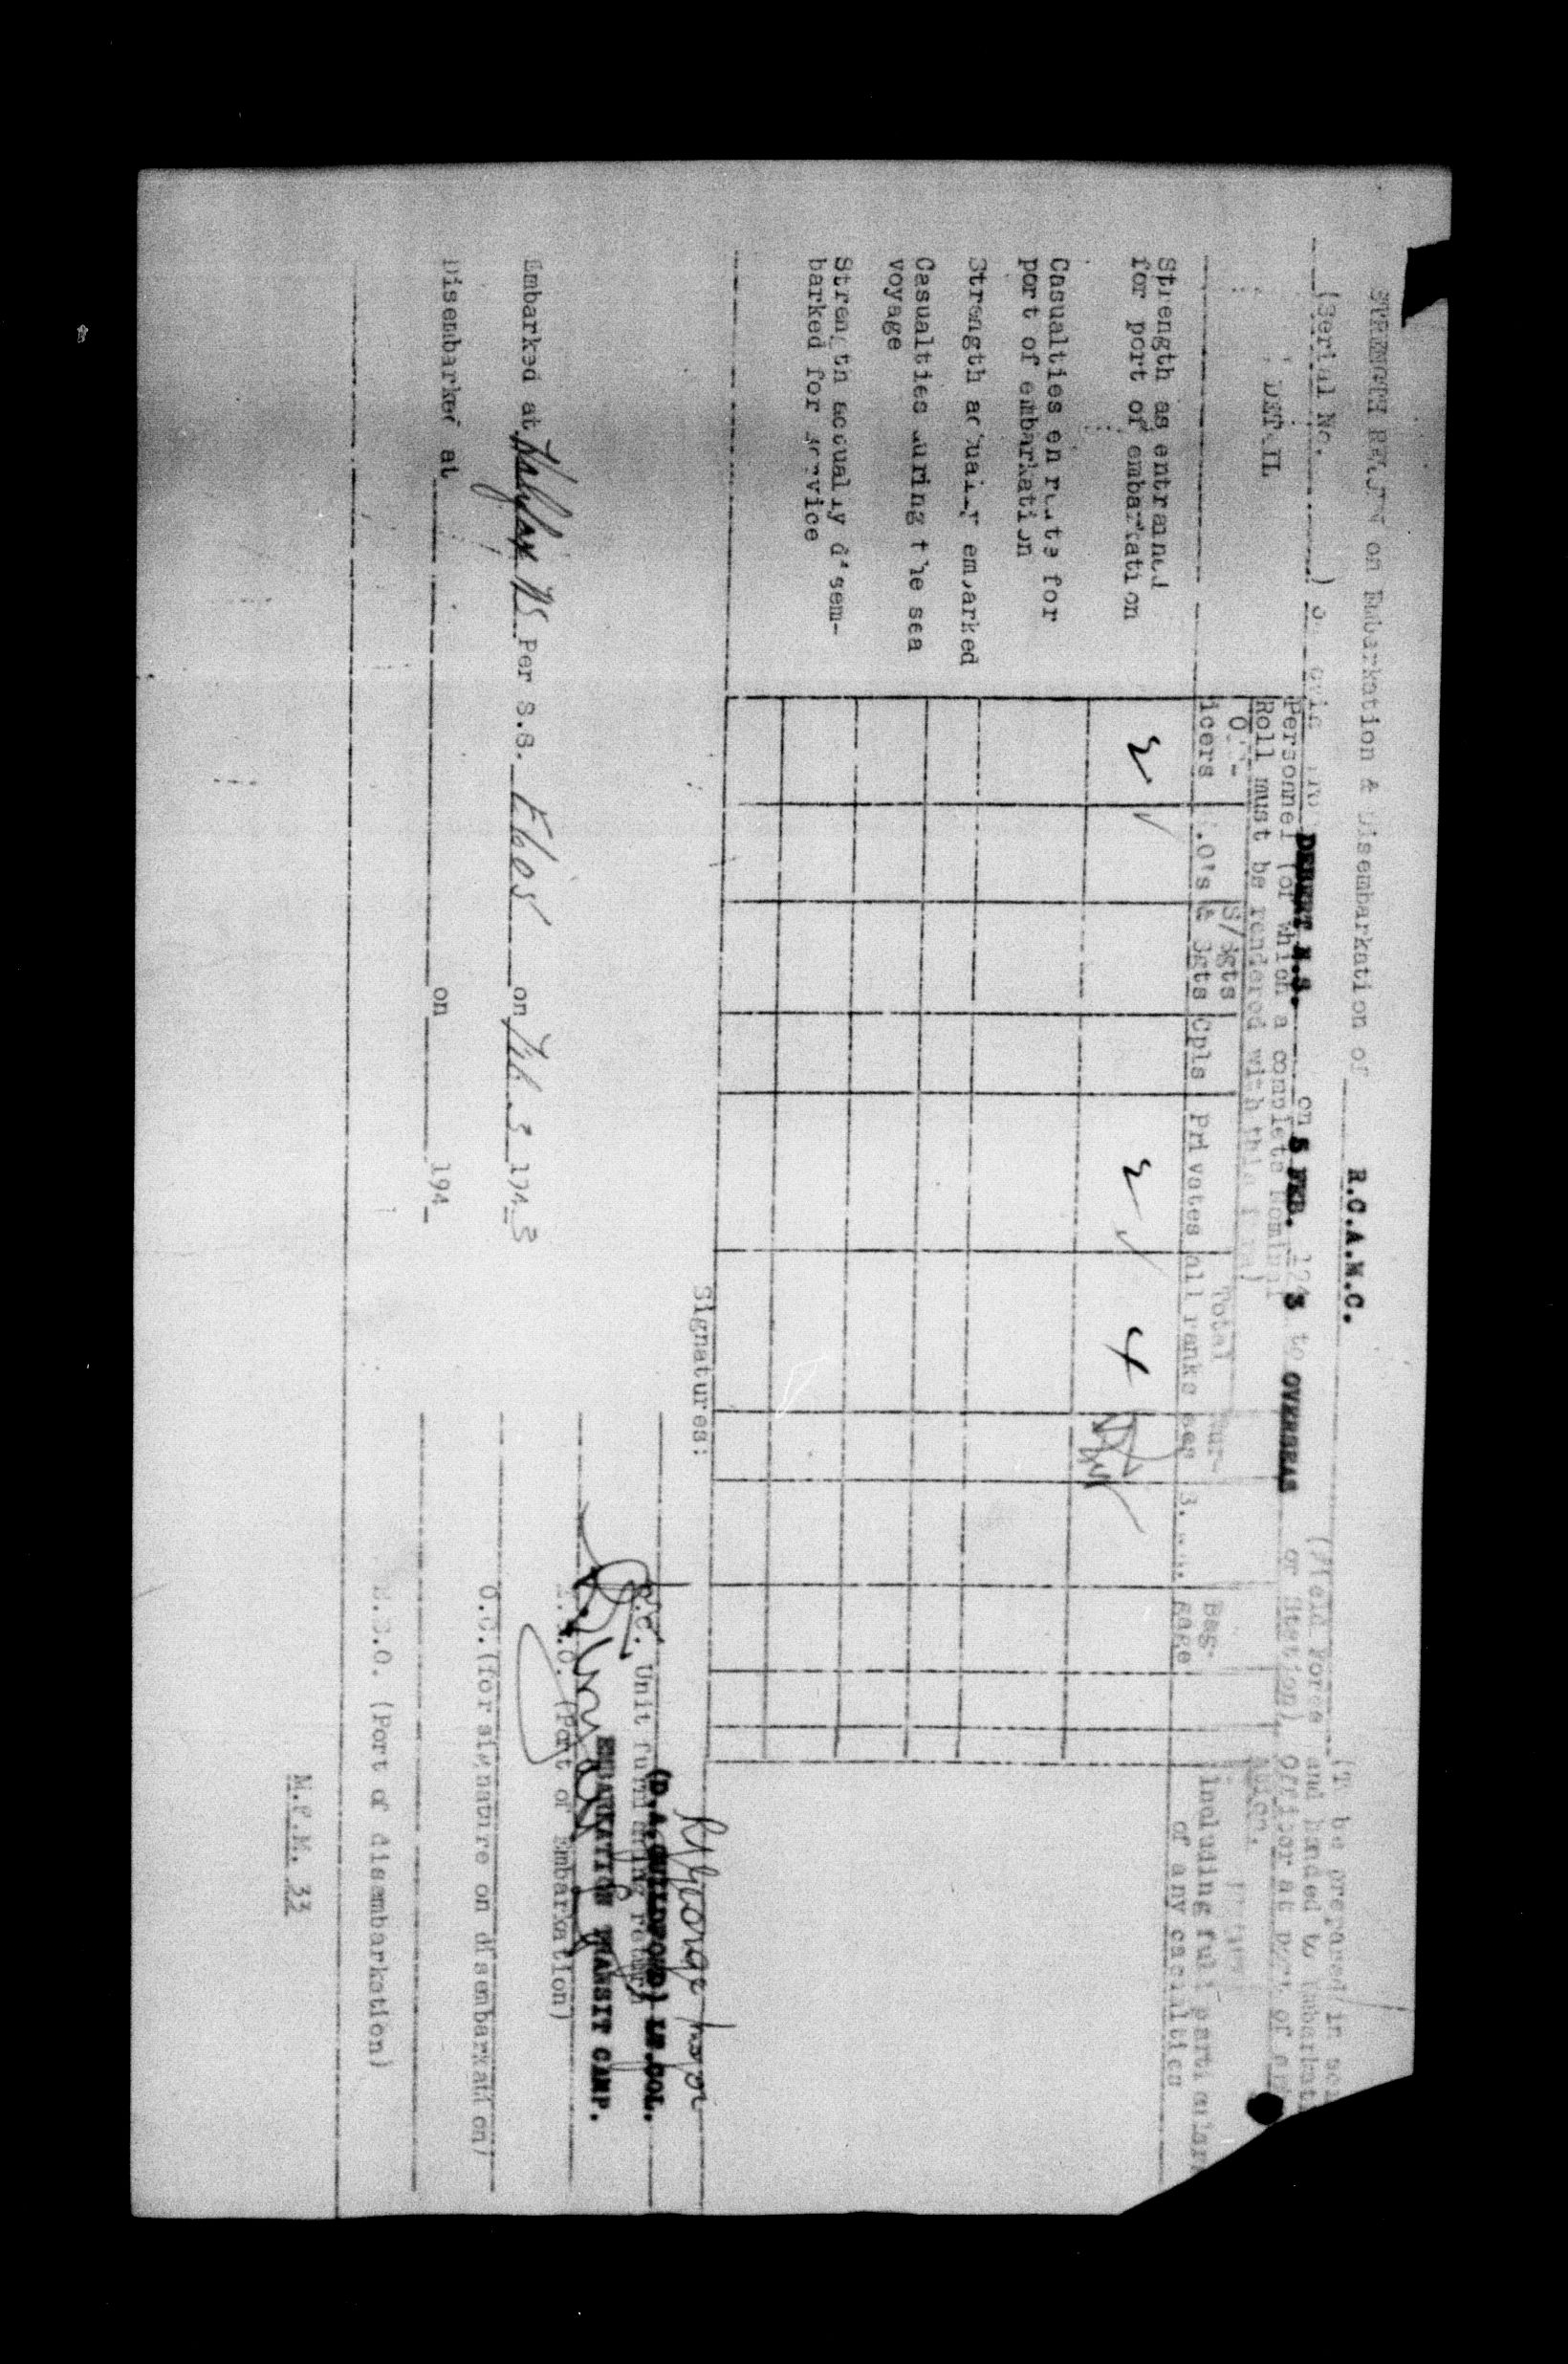 STRENGTH RETURN on Embarkation & Disembarkation of R.C.A.M.C.
(Serial No. ) DEBERT N.S. on 5 FEB. 194 3 to OVERSEAS
(Field Force or Station).
Personnel (of which a complete Nominal
Roll must be rendered with this form)
(To be prepared in
and handed to Embarkation
Officer at port of
DETAIL
Off-
icers
W.O's &
S/Sgts
Sgts
Cpls
Privates
Total
all ranks
Bag-
gage
including full particulars
of any casualties
Strength as entrained
for port of embarkation 2 2 4
Casualties en route for
port of embarkation
Strength actually embarked
Casualties during the sea
voyage
Strength actually disem-
barked for service
Signatures:
(D.A. LT.COL.
O.C. Unit furnishing return
EMBARKATION TRANSIT CAMP.
Embarked at Halifax NS Per S.S. on Feb. 194 3
(Port of Embarkation)
O.C.(for signature on disembarkation)
Disembarked at on 194
(Port of disembarkation)
M.F.M. 33